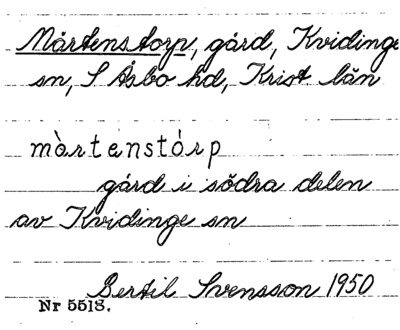 Mårtenstorp, gård, Kvidinge
sn, S Åsbo hd, Krist län
màrtenstórp
gård i södra delen
av Kvidinge sn
Bertil Svensson 1950
Nr 5513.